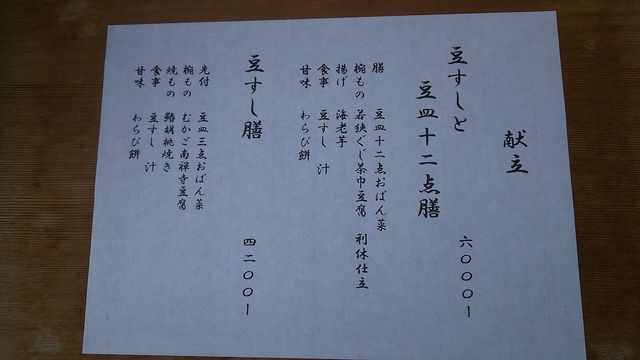 献立
豆すしと
豆皿十二点膳 六〇〇〇ー
膳 豆皿十二点おばん菜
椀もの 若狭ぐじ茶巾豆腐 利休仕立
揚げ 海老芋
食事 豆すし 汁
甘味 わらび餅
豆すし膳 四二〇〇ー
先付 豆皿三点おばん菜
椀もの むかご南禅寺豆腐
焼もの 鰆胡桃焼き
食事 豆すし 汁
甘味 わらび餅